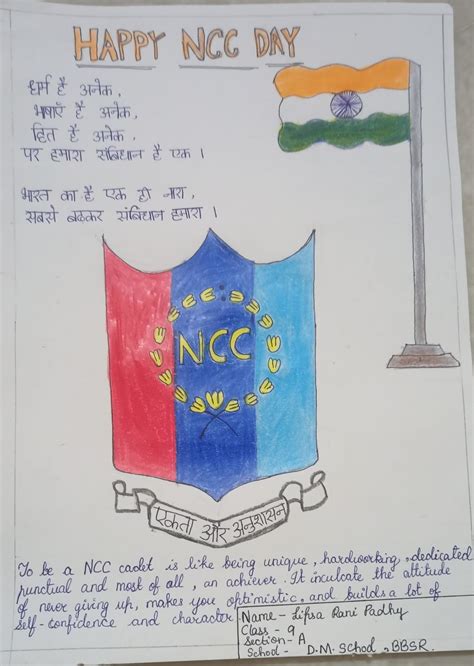 HAPPY NCC DAY
धर्म है अनेक,
भाषाएँ है अनेक,
हित है अनेक,
पर हमारा संबिधान है एक ।
भारत का है एक ही नारा,
सबसे बढकर संबिधान हमारा ।
NCC
एकता और अनुशासन
To be a NCC cadet is like being unique, hardworking, dedicated
punctual and most of all, an achiever. It inculcate the attitude
of never giving up, makes you optimistic, and builds a lot of
self-confidence and character
Name - Lipsa Rani Padhy
Class - 9
Section - A
School - D.M. School, BBSR.